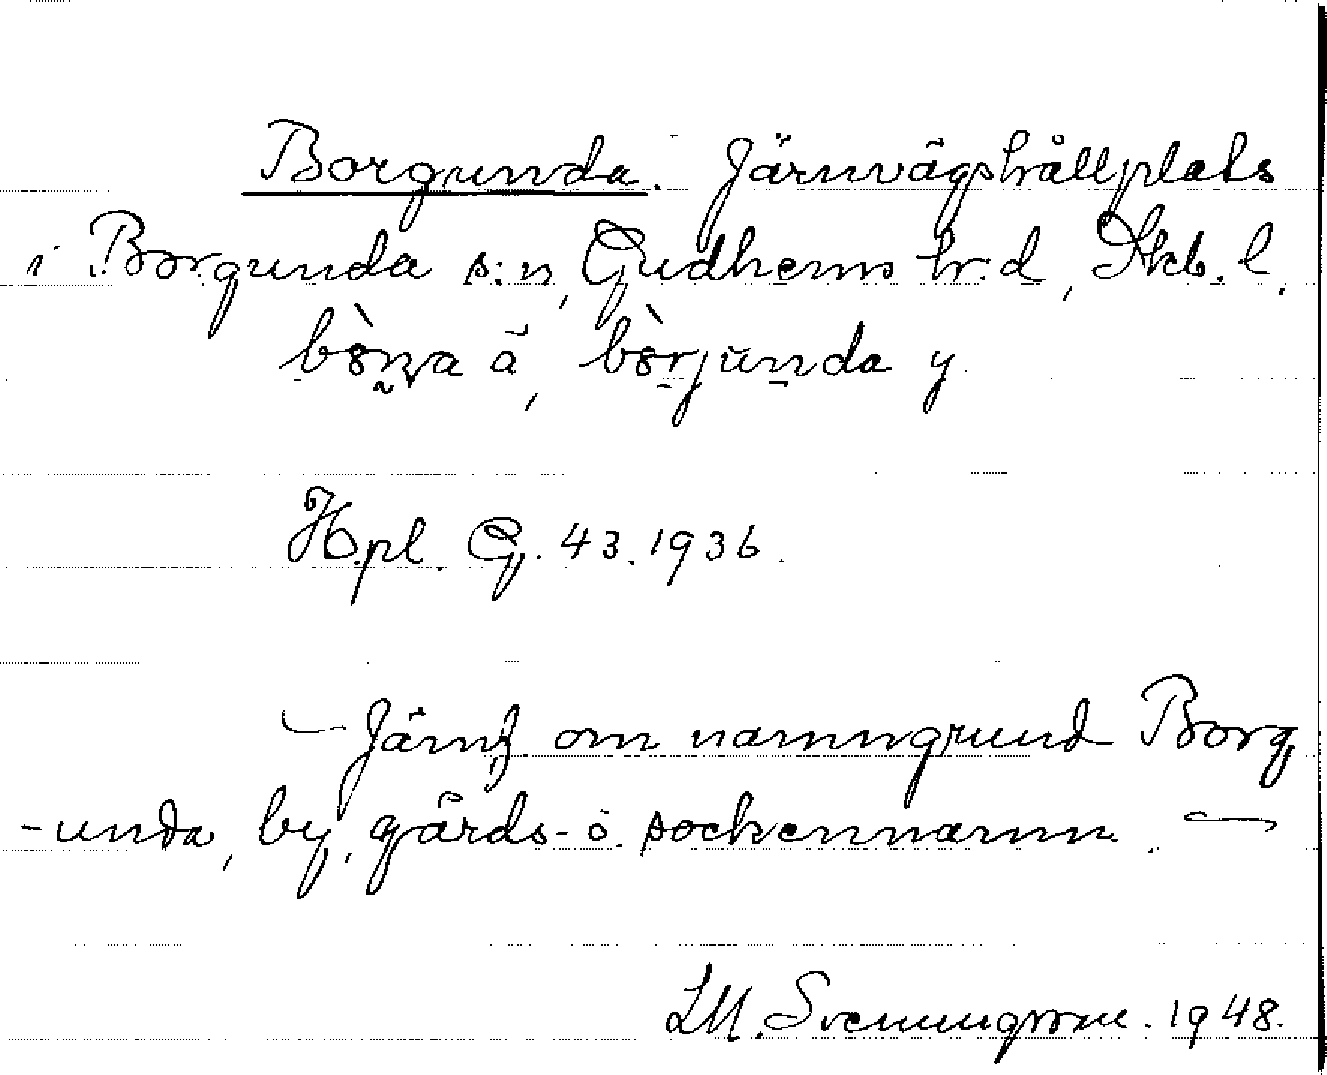 Borgunda. Järnvägshållplats
i Borgunda s:n, Gudhems hr:d, Skb. l.
ä, y.
Hpl. G. 43. 1936.
– Järnf om namngrund Borg
-unda, by, gårds- o. sockennamn. –
LM. Svenungsson. 1948.